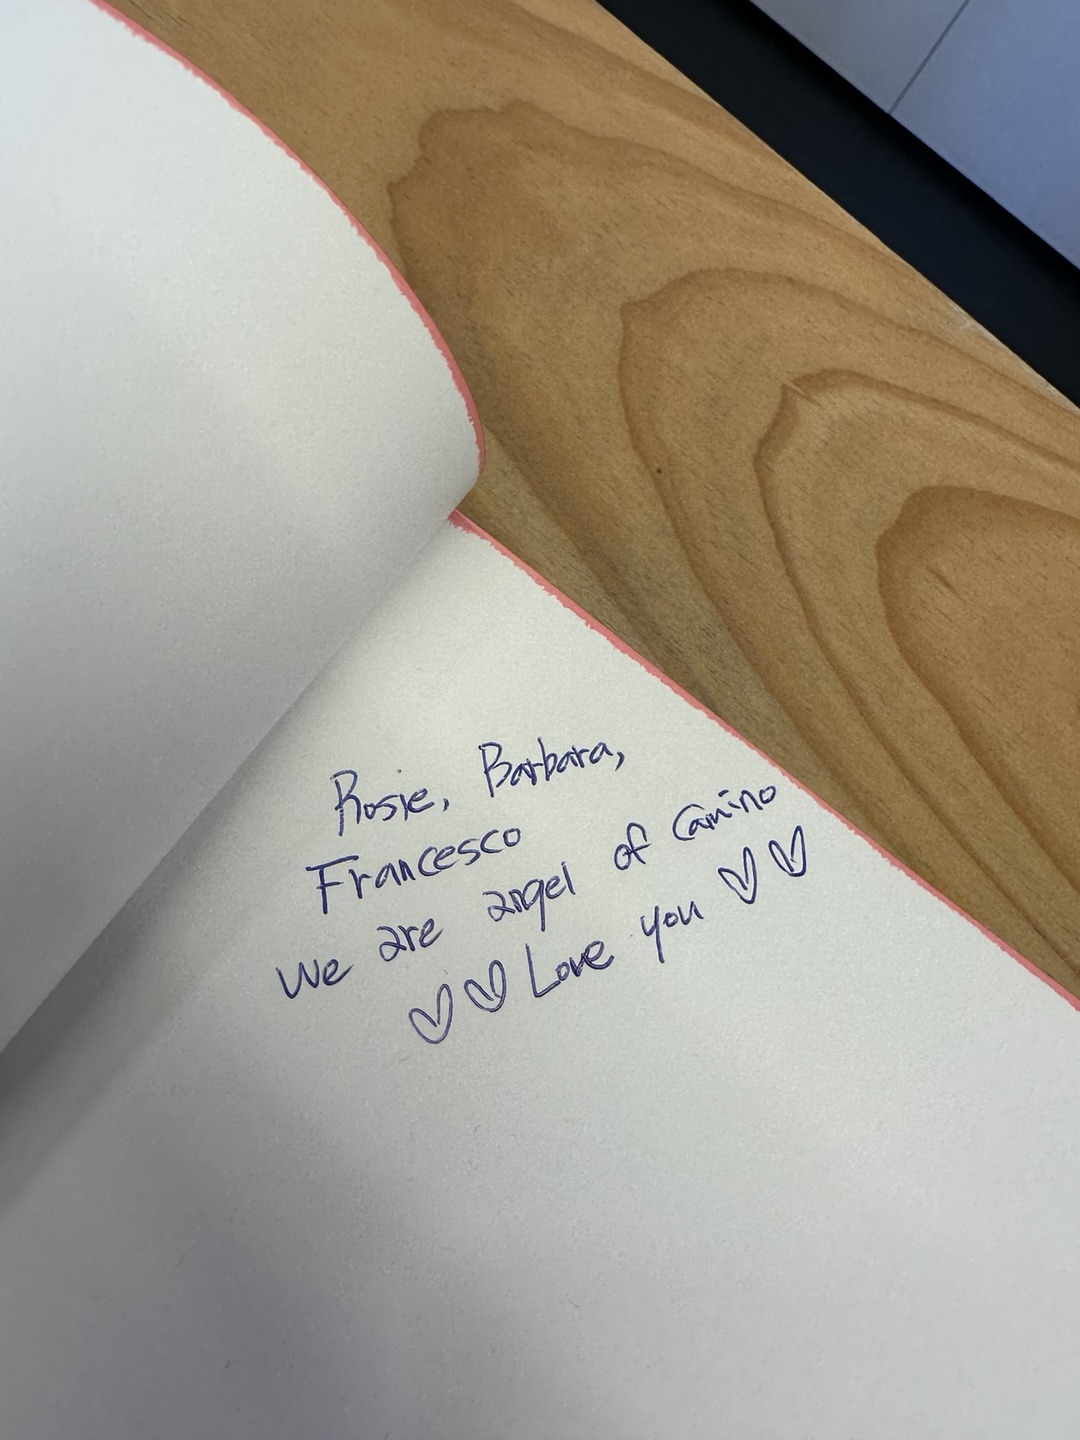 Rosie, Barbara,
Francesco
We are angel of Camino
♡♡ Love you ♡♡